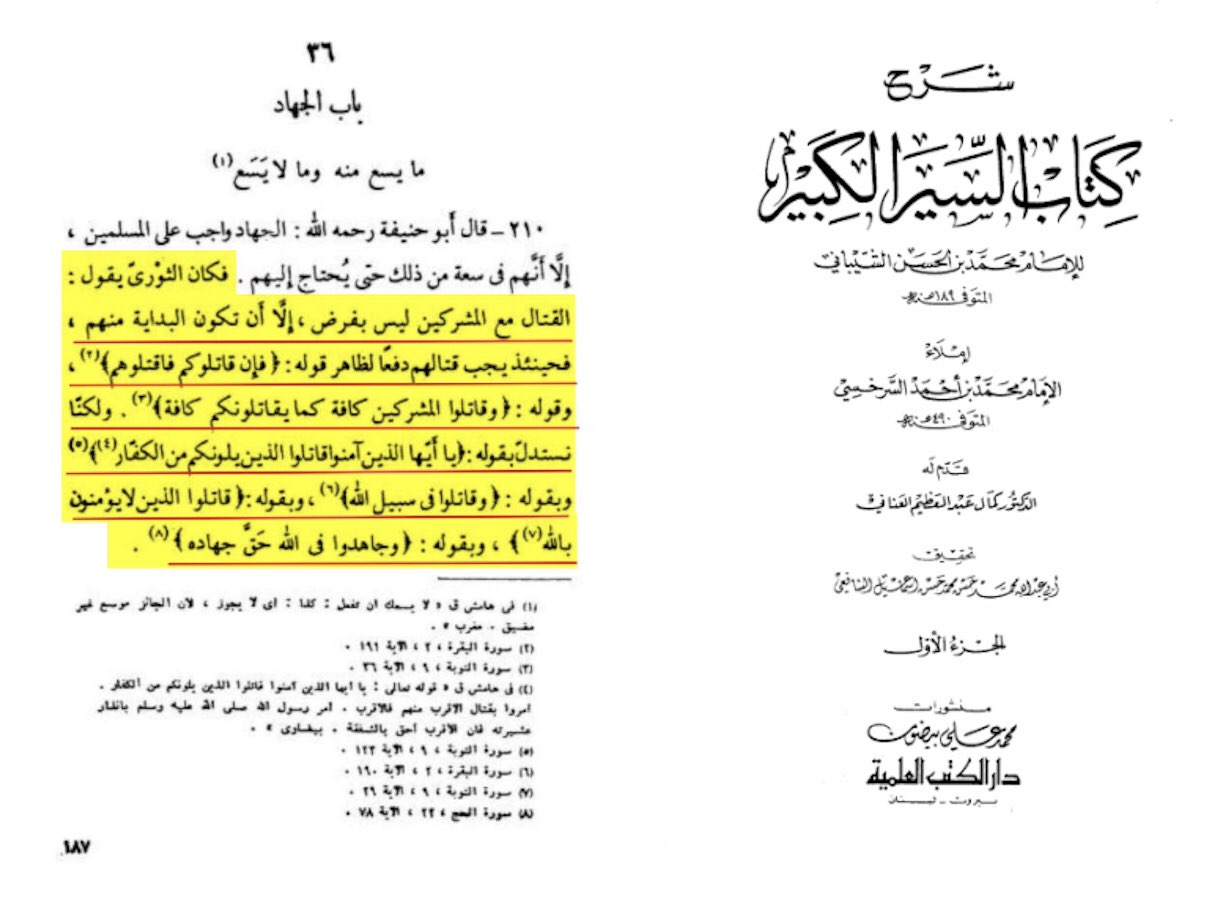 ٣٦
باب الجهاد
ما يسع منه وما لا يَسَع (١)
٢١٠ – قال أبو حنيفة رحمه الله : الجهاد واجب على المسلمين ،
إلَّا أنَّهم فى سعة من ذلك حتى يُحتاج إليهم . فكان الثورىّ يقول :
القتال مع المشركين ليس بفرض ، إلَّا أن تكون البداية منهم ،
فحينئذ يجب قتالهم دفعًا لظاهر قوله : ﴿ فإن قاتلوكم فاقتلوهم ﴾(٢) ،
وقوله : ﴿ وقاتلوا المشركين كافة كما يقاتلونكم كافة ﴾(٣) . ولكنّا
نستدلّ بقوله : ﴿ يا أيّها الذين آمنوا قاتلوا الذين يلونكم من الكفّار(٤) ﴾(٥)
وبقوله : ﴿ وقاتلوا فى سبيل الله ﴾(٦) ، وبقوله : ﴿ قاتلوا الذين لا يؤمنون
بالله(٧) ﴾ ، وبقوله : ﴿ وجاهدوا فى الله حَقَّ جهاده ﴾(٨) .
(١) فى هامش ق « لا يسمك ان تفعل : كذا : اى لا يجوز ، لان الجائز موسع غير
مضيق . مغرب » .
(٢) سورة البقرة ، ٢ ، الآية ١٩١ .
(٣) سورة التوبة ، ٩ ، الآية ٣٦ .
(٤) فى هامش ق « قوله تعالى : يا ايها الذين آمنوا قاتلوا الذين يلونكم من الكفار .
امروا بقتال الاقرب منهم فالاقرب . امر رسول الله صلى الله عليه وسلم بانذار
عشيرته فان الاقرب أحق بالشفقة . بيضاوى » .
(٥) سورة التوبة ، ٩ ، الآية ١٢٣ .
(٦) سورة البقرة ، ٢ ، الآية ١٩٠ .
(٧) سورة التوبة ، ٩ ، الآية ٢٩ .
(٨) سورة الحج ، ٢٢ ، الآية ٧٨ .
١٨٧
شرح
كتاب السير الكبير
للإمام محمد بن الحسن الشيباني
المتوفى ١٨٩ سنة هـ
إملاء
الإمام محمد بن أحمد السرخسي
المتوفى ٤٩٠ سنة هـ
قدم له
الدكتور كمال عبد العظيم العناني
تحقيق
أبي عبد الله محمد حسن محمد حسن إسماعيل الشافعي
الجزء الأول
منشورات
محمد علي بيضون
دار الكتب العلمية
بيروت – لبنان